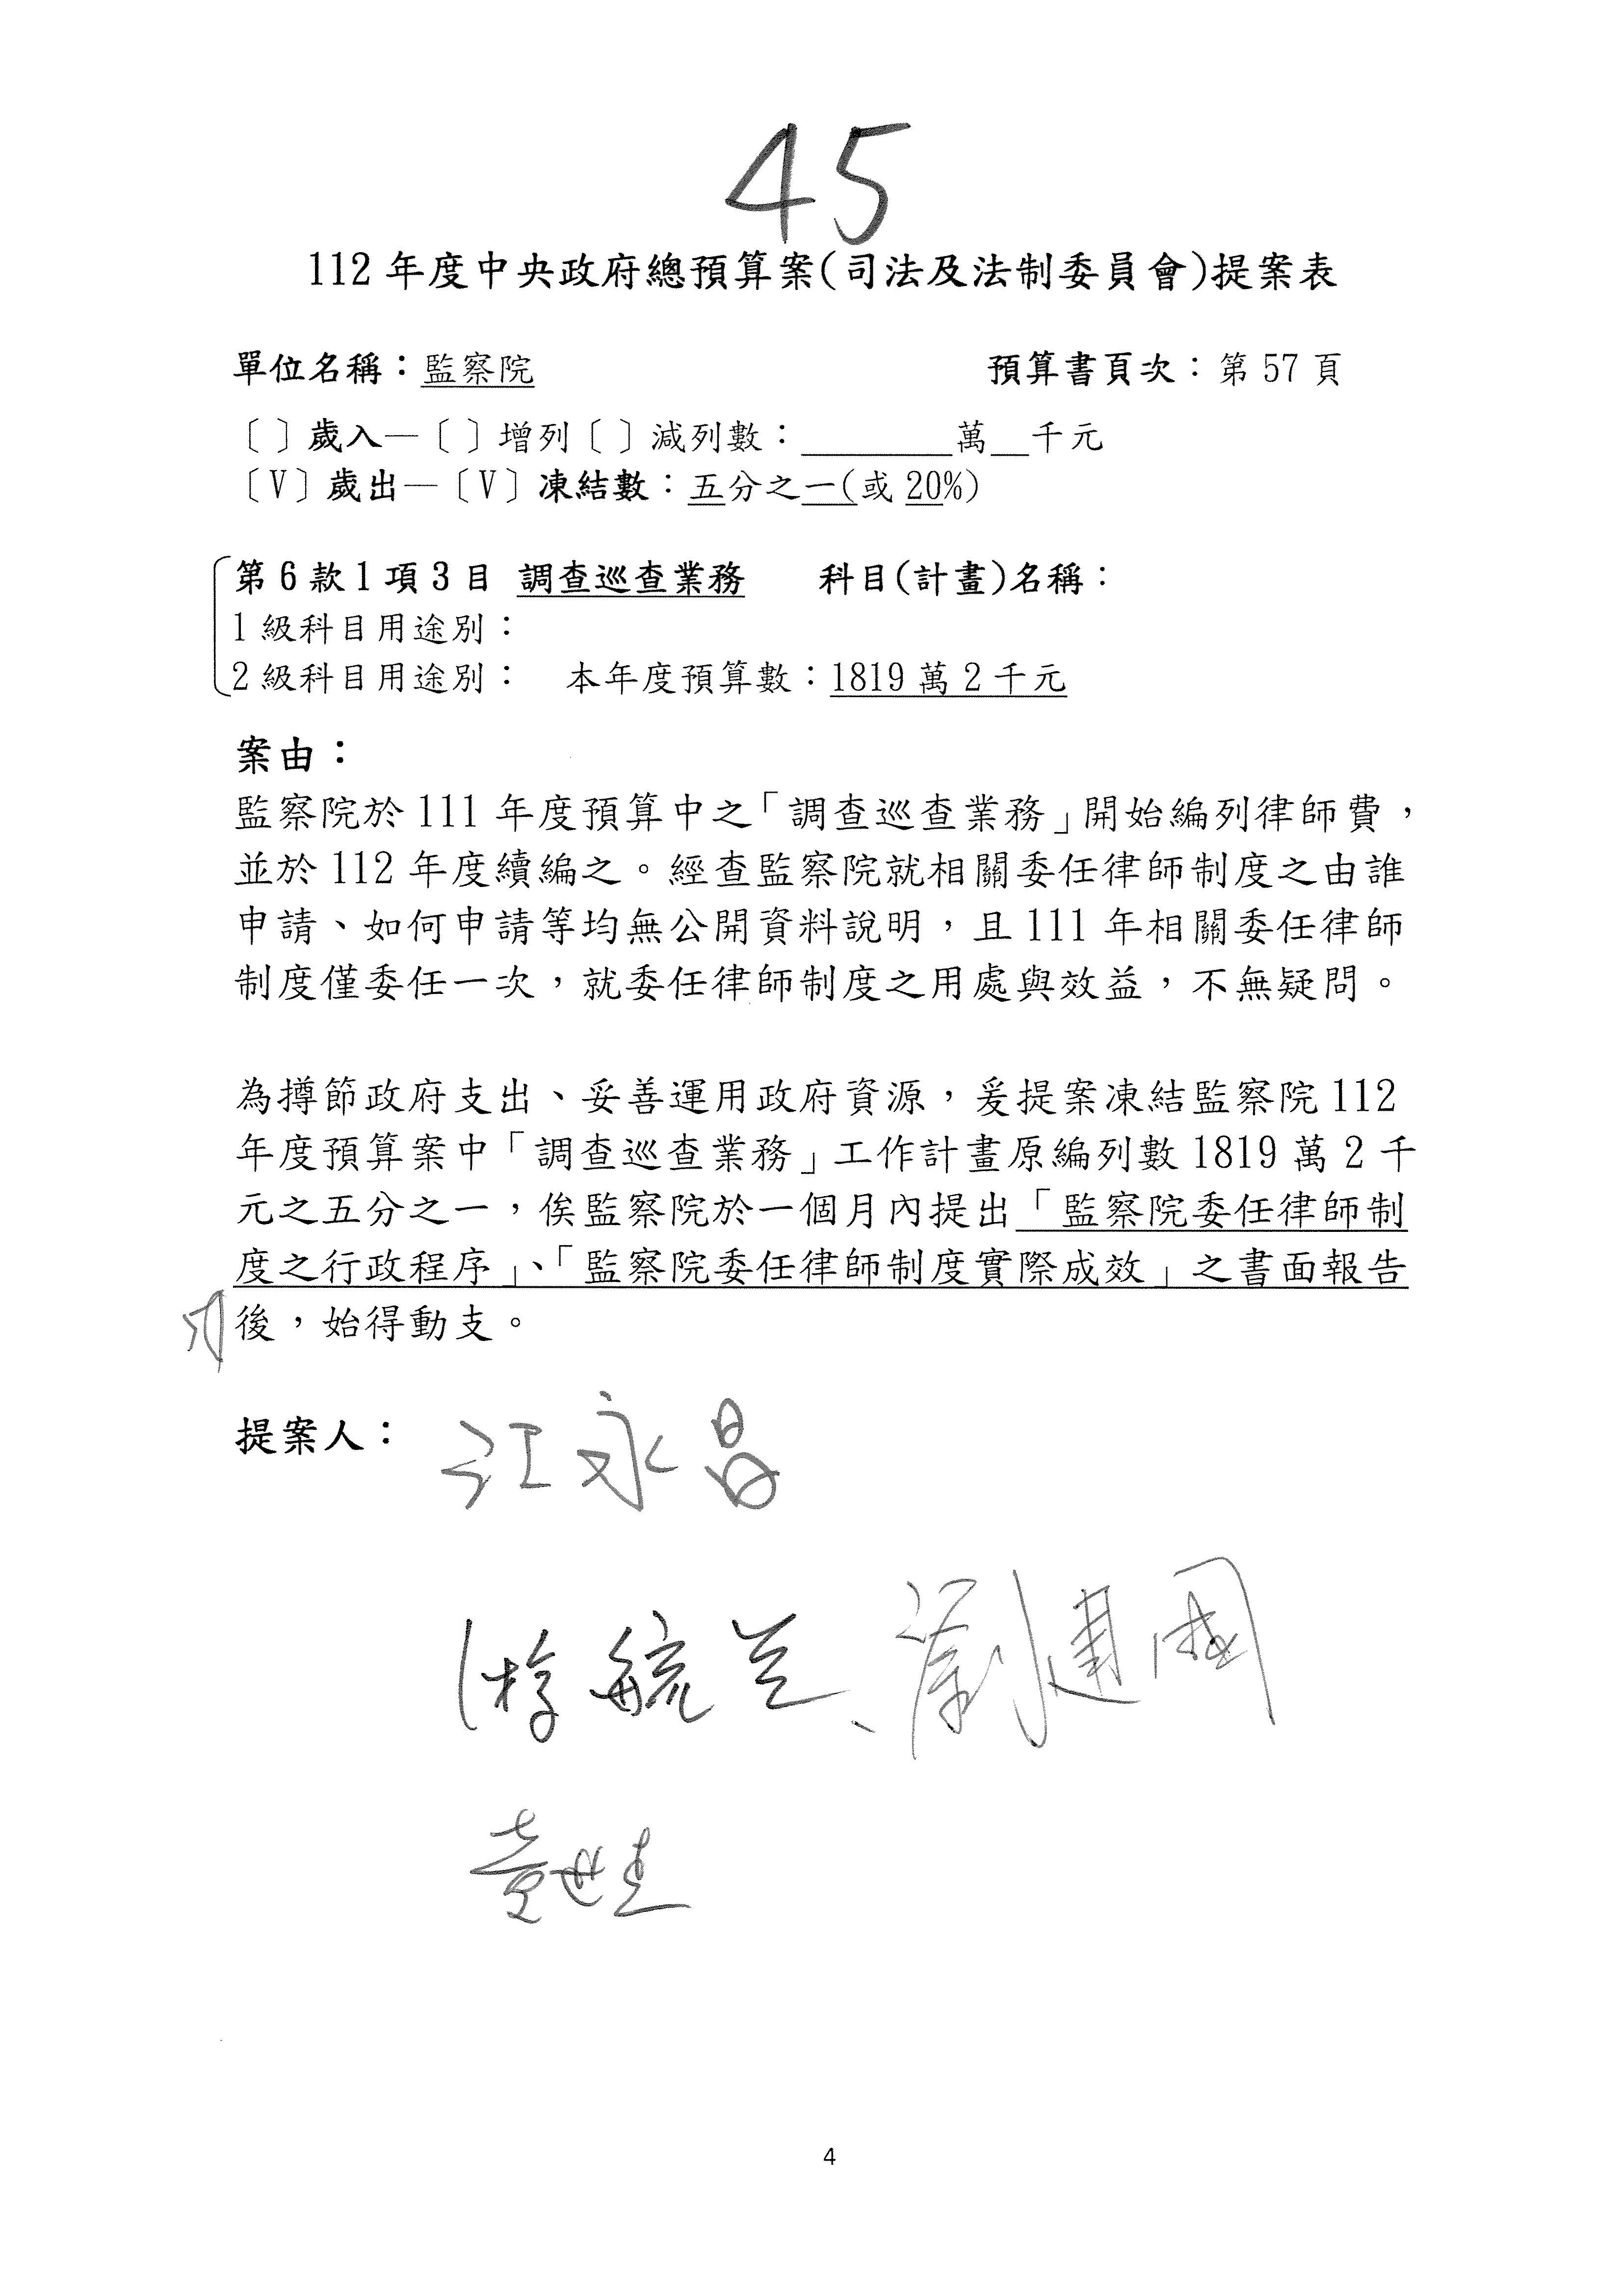 45
112年度中央政府總預算案(司法及法制委員會)提案表
單位名稱：監察院 預算書頁次：第57頁
〔 〕歲入—〔 〕增列〔 〕減列數：________萬__千元
〔V〕歲出—〔V〕凍結數：五分之一(或20%)
第6款1項3目 調查巡查業務 科目(計畫)名稱：
1級科目用途別：
2級科目用途別： 本年度預算數：1819萬2千元
案由：
監察院於111年度預算中之「調查巡查業務」開始編列律師費，
並於112年度續編之。經查監察院就相關委任律師制度之由誰
申請、如何申請等均無公開資料說明，且111年相關委任律師
制度僅委任一次，就委任律師制度之用處與效益，不無疑問。
為撙節政府支出、妥善運用政府資源，爰提案凍結監察院112
年度預算案中「調查巡查業務」工作計畫原編列數1819萬2千
元之五分之一，俟監察院於一個月內提出「監察院委任律師制
度之行政程序」、「監察院委任律師制度實際成效」之書面報告
後，始得動支。
提案人：江永昌
游毓兰、劉建國
4